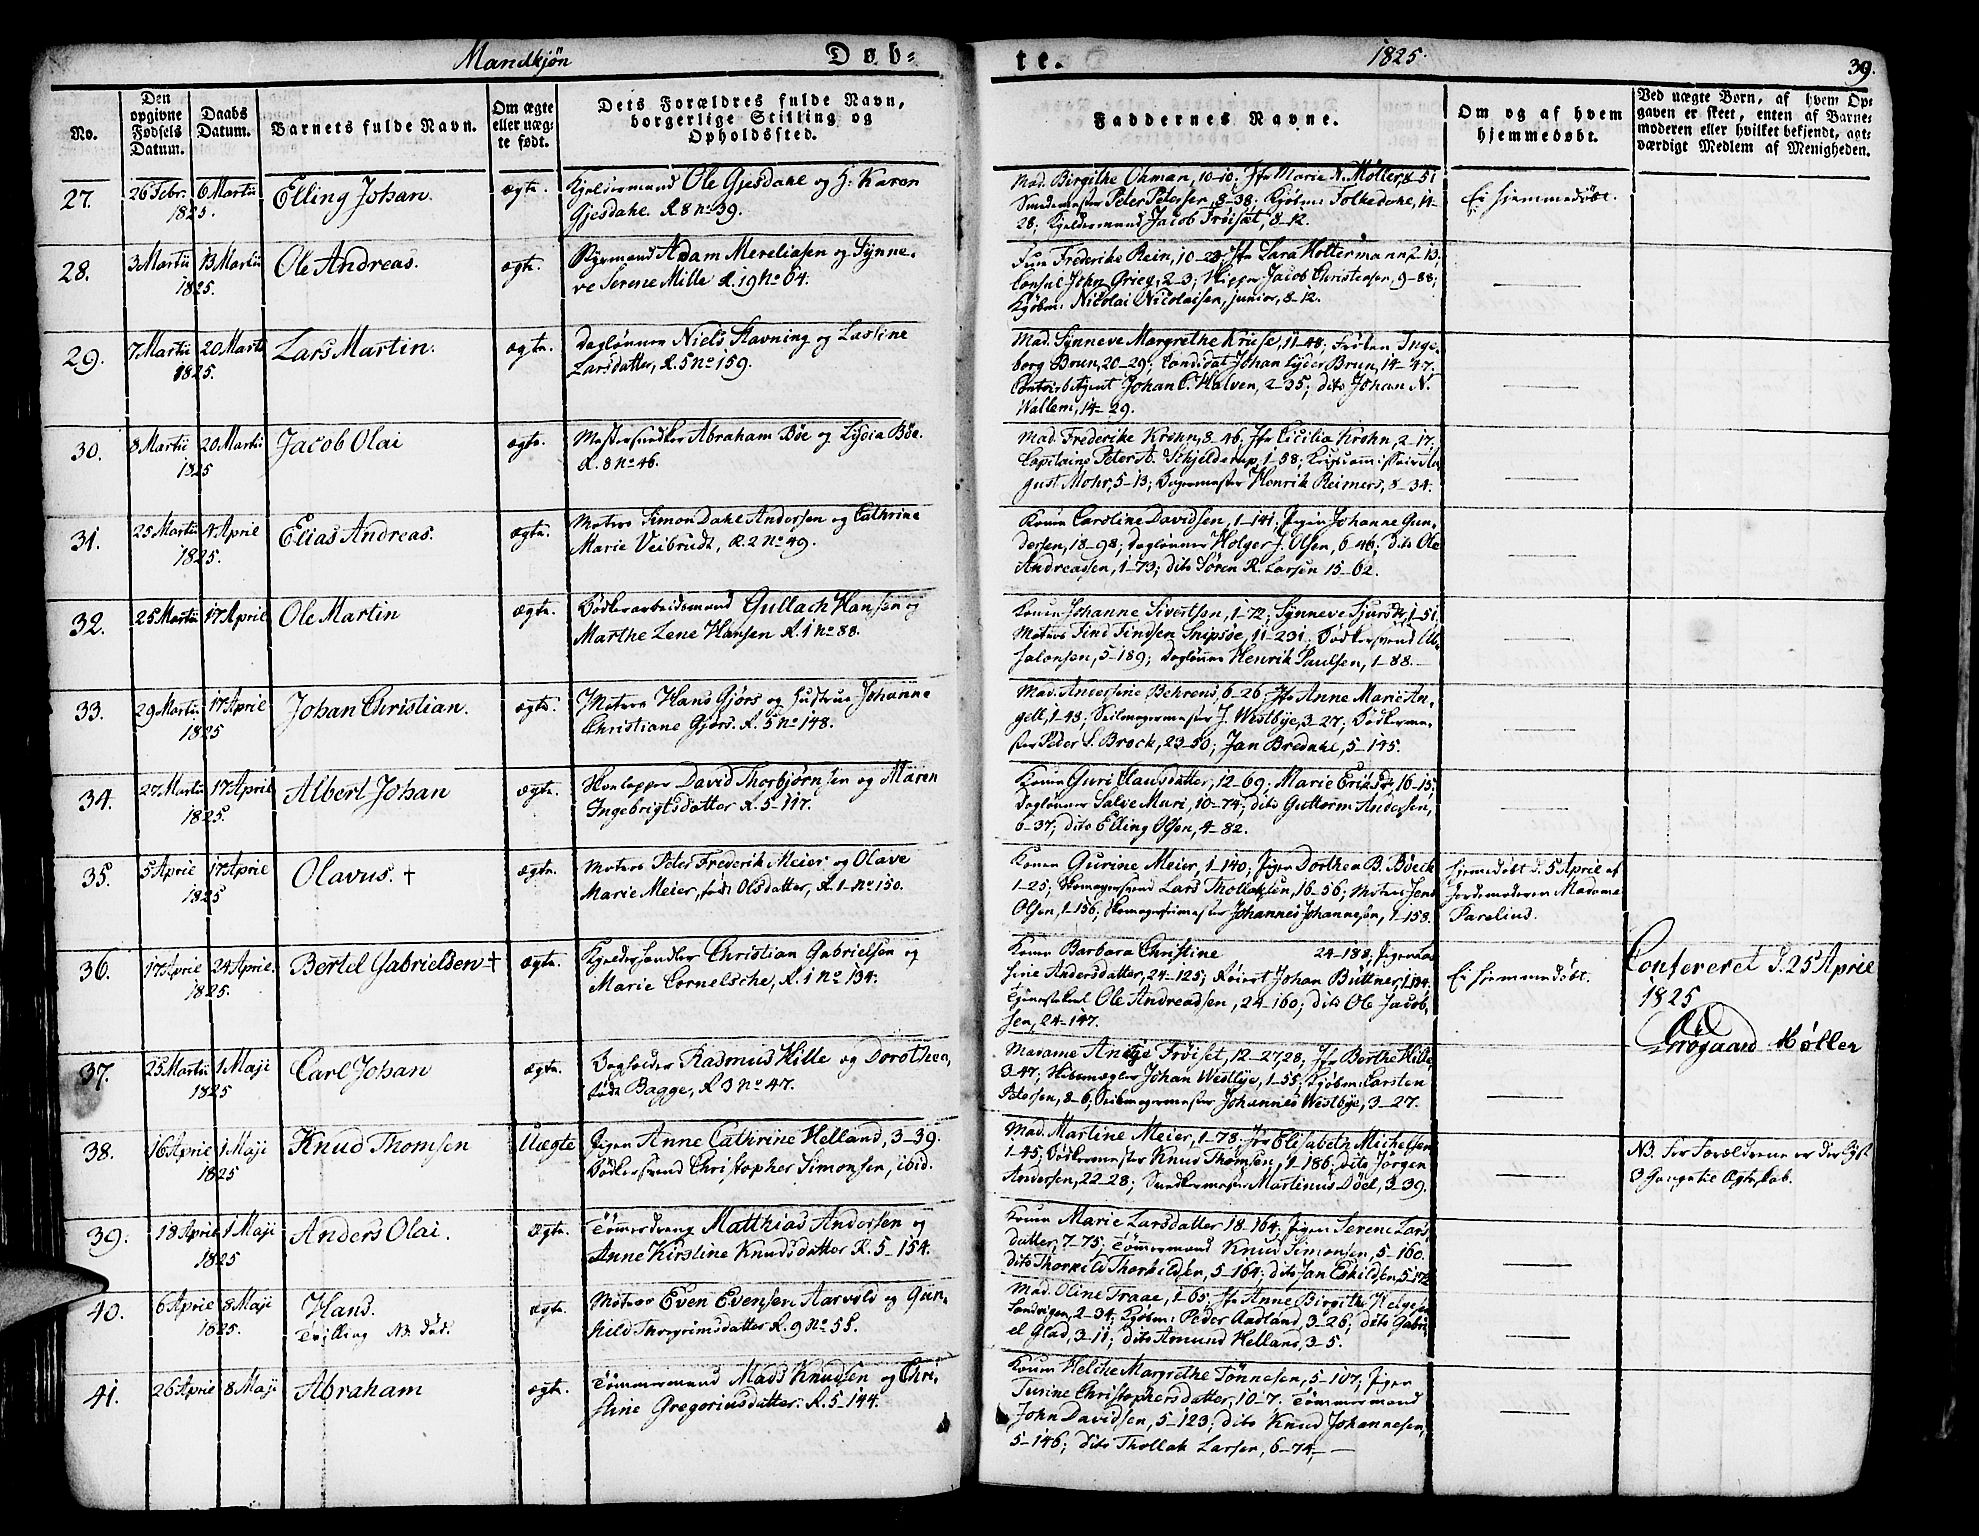 Mandkjön
Døb-
te.
1825.
39.
No.
Den opgivne Fødsels Datum.
Daabs Datum.
Barnets fulde Navn.
Om ægte eller uægte født.
Dets Forældres fulde Navn, borgerlige Stilling og Opholdssted.
Faddernes Navne.
Om og af hvem hjemmedøbt.
Ved uægte Børn, af hvem Opgaven er skeet, enten af Barnemoderen eller hvilket bekjendt, agtværdigt Medlem af Menigheden.
27.
26 Febr. 6 Martii
1825.
Elling Johan.
ægte.
Kjeldermand Ole Gjesdahl og H: Karen
Gjesdahl. R. 8 No 39.
Mad. Birgithe Ohman, 10-10. Jfr Marie N. Møller, 8-51
Smedemester Peter Petersen, 8-38; Kjøbm: Folkedahl, 14-
28; Kjeldermand Jacob Trøisæt, 8-12.
Ei hjemmedøbt.
28.
3 Martii 13 Martii
1825.
Ole Andreas.
ægte.
Styrmand Adam Mereliasen og Synne-
ve Serene Mille R. 19 No 64.
Frue Frederike Rein, 10-23; Jfr Lara Holtermann, 2-13.
Consul John Grieg, 2-3; Skipper Jacob Christensen, 9-88;
Kjøbm: Nicolai Nicolaisen, junior, 8-12.
29.
7 Martii 20 Martii
1825.
Lars Martin.
ægte.
Daglønner Niels Stavning og Lasline
Larsdatter, R. 5 No 159.
Mad. Synneve Margrethe Kruse, 11-48; Frøken Inge-
borg Brun, 20-29; Candidat Johan Lyder Brun, 14-47.
Contoirbetjent Johan C. Halven, 2-35; dito Johan N.
Wallem, 14-29.
30.
8 Martii 20 Martii
1825
Jacob Olai
ægte.
Mestersnedker Abraham Bøe og Lydia Bøe.
R. 8 No 46.
Mad. Frederike Krohn, 8-46, Jfr Cicilia Krohn, 2-17;
Capitaine Peter A. Schjelderup, 1-58;
gust Mohr, 5-13; Bagermester Henrik Reimers, 8-34.
31.
25 Martii 4 April
1825.
Elias Andreas.
ægte.
Matros Simon Dahl Andersen og Cathrine
Marie Veibrudt, R. 2 No 49.
Konen Caroline Davidsen, 1-141; Pigen Johanne Gun-
dersen, 18-98; Daglønner Holger J. Olsen, 6-46; dito Ole
Andreassen, 1-73; dito Søren R. Larsen 15-62.
32.
25 Martii 17 April
Ole Martin
ægte.
Bødkerarbeidsmand Gullach Hansen og
Marthe Lene Hansen R. 1 No 88.
Konen Johanne Sivertsen, 1-72; Synneve Sjursdr, 1-51.
Matros Find Findsen Snipsøe, 11-231. Bødkersvend Ab-
salonsen, 5-189; Dagløner Henrik Paulsen, 1-88.
33.
29 Martii 17 April
1825
Johan Christian.
ægte.
Matros Hans Gjørs og Hustrue Johanne
Christiane Gjørs. R. 5 No 148.
Mad. Andersine Behrens, 6-26; Jfr Anne Marie An-
gell, 1-48; Seilmagermester J. Westbye, 3-27; Bødkerme-
ster Peder S. Brock, 23-50; Jan Bredahl, 5-145.
34.
27 Martii 17 April
1825
Albert Johan
ægte.
David Thorbjørnsen og Maren
Ingebrigtsdatter R. 5-117.
Konen Guri Clausdatter, 12-69; Marie Eriksdr, 16-15;
Dagløner Salve Muri, 10-74; dito Guttorm Andersen,
6-37; dito Elling Olsen, 4-82.
35.
5 April 17 April
1825
Olavus. †
ægte.
Matros Peter Frederik Meier og Olave
Marie Meier, født Olsdatter, R. 1-No 150.
Konen Gurine Meier, 1-140; Pigen Dorthea B. Böeck
1-25; Skomagersvend Lars Thollaksen, 16-56; Matros Jens
Olsen, 1-156; Skomagermester Johannes Johannesen, 1-158.
Hjemmedøbt d. 5 April af
Jordemoderen Madame
Parelius.
36.
17 April 24 April
1825.
Bertel Gabrielsen †
ægte.
Christian Gabrielsen og
Marie Cornelsche, R. 1 No 134.
Konen Barbara Christine 24-188. Pigen La-
sine Andersdatter, 24-125; Røiert Johan Büttner, 1-
Ole Andreadsen, 24-160; dito Ole Jacob-
sen, 24-147.
Ei hjemmedøbt.
Confereret d. 25 April
1825
Krogaard Møller
37.
25 Martii 1 Maji
1825
Carl Johan
ægte.
Bogholder Rasmus Hille og Dorothea,
født Bagge, R. 3 No 47.
Madame Antje Trøiset, 12-27,28, Jfr Berthe Hille,
3-47; Skibsmægler Johan Westbye, 1-55; Kjøbm: Carsten
Petersen, 8-6; Seilmagermester Johannes Westbye, 3-27.
38.
16 April 1 Maji
1825
Knud Thomsen
Uægte
Pigen Anne Cathrine Helland, 3-39.
Bødkersvend Christopher Simonsen, ibid.
Mad. Martine Meier, 1-78; Jfr Elisabeth Michelsen
1-45; Bødkermester Knud Thomsen, 1-186; dito Jørgen
Andersen, 22-28; Snedkermester Martinus Döel, 3-39.
NB. For Forældrene er der lyst
3 Gange til Ægteskab.
39.
18 April 1 Maji
1825
Anders Olai.
Ægte.
Tømmerdreng Matthias Andersen og
Anne Kirstine Knudsdatter R. 5-154.
Konen Marie Larsdatter 18-164; Pigen Serene Lars-
datter, 7-75; Tømmermand Knud Simonsen, 5-160.
dito Thorkild Thorkildsen, 5-164; dito Jan Eskildsen, 5-172
40.
6 April 8 Maji
1825.
Hans.
Tvilling NB. død.
ægte.
Matros Even Evensen Aarvold og Gun-
hild Thorgrimsdatter R. 9 No 55.
Mad. Oline Traae, 1-65; Jfr Anne Birgithe Helgesen
Sandvigen, 2-34; Kjøbm: Peder Aadland, 3-26; dito Gabri-
el Glad, 3-11; dito Amund Helland, 3-5.
41.
26 April 8 Maji
Abraham
ægte.
Tømmermand Mads Knudsen og Chri-
stine Gregoriusdatter: R. 5-144.
Konen Helche Margrethe Tønnesen, 5-107; Pigen
Turine Christophersdatter, 10-7. Tømmermand
John Davidsen, 5-123; dito Knud Johannesen,
5-146; dito Thollak Larsen, 6-74,